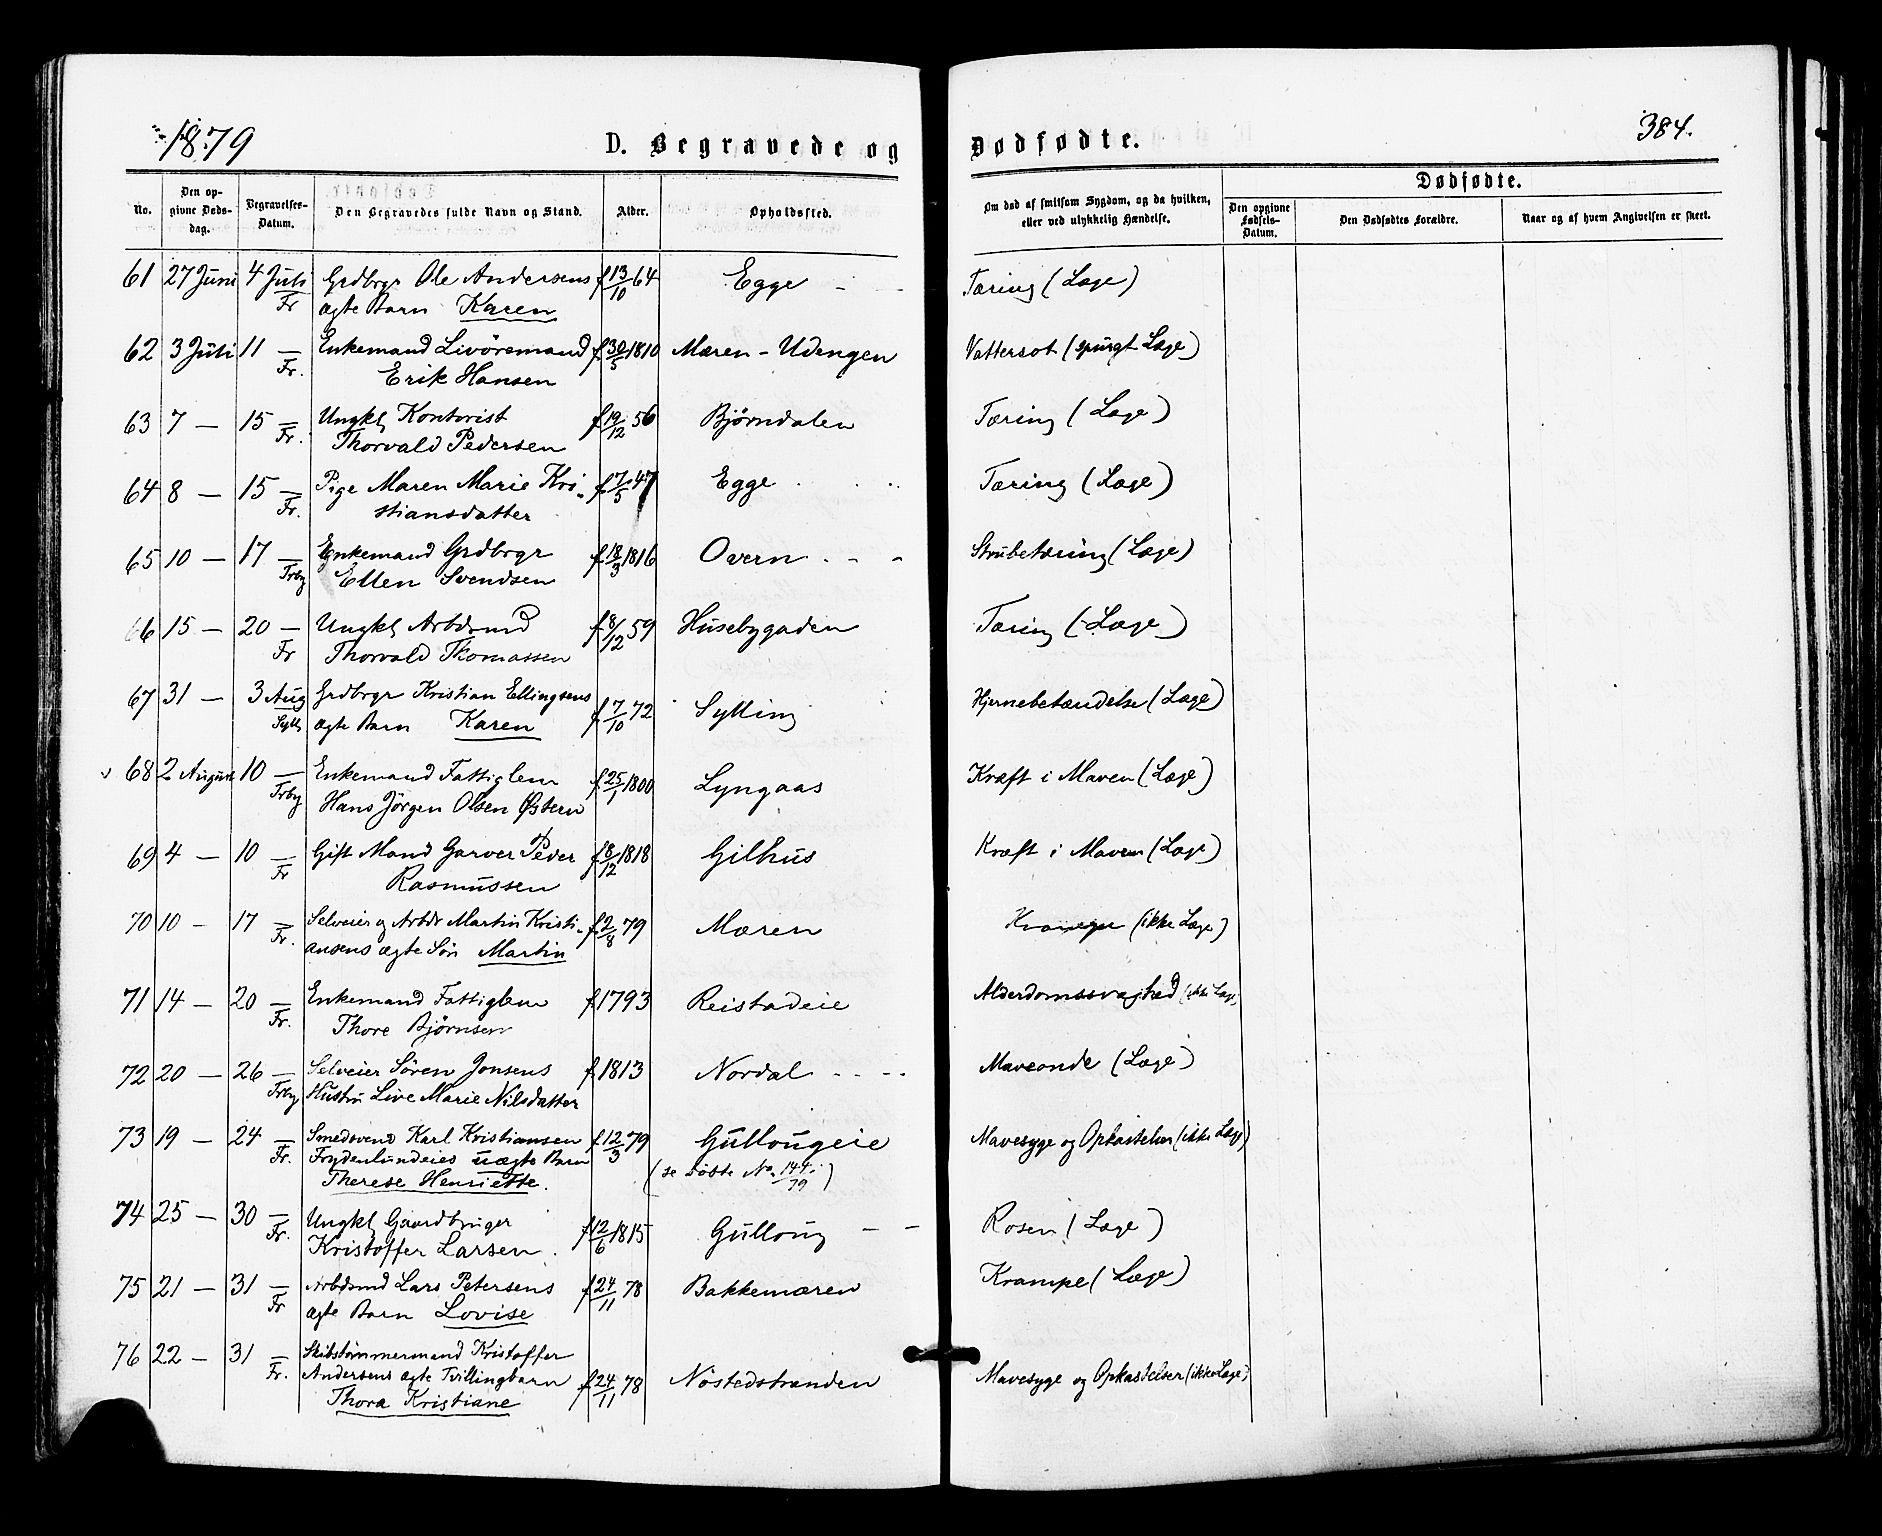 1879
D. Begravede og
Dødfødte.
384.
No.
Den op-
givne Døds-
dag.
Begravelses-
Datum.
Den Begravedes fulde Navn og Stand.
Alder.
Opholdssted.
Om død af smitsom Sygdom, og da hvilken,
eller ved ulykkelig Hændelse.
Dødfødte.
Den opgivne
Fødsels-
Datum.
Den Dødfødtes Forældre.
Naar og af hvem Angivelsen er skeet.
61 27 Juni 4 Juli Grdbrgr Ole Andersens f 13/10 64 Egge Tæring (Læge)
Fr ægte Barn Karen
62 3 Juli 11 — Enkemand Livöremand f 30/5 1810 Mæren - Udengen Vattersot (spurgt Læge)
Fr. Erik Hansen
63 7 — 15 — Ungkl Kontorist f 19/12 56 Bjørndalen Tæring (Læge)
Fr. Thorvald Pedersen
64 8 — 15 — Pige Maren Marie Kri- f 7/5 47 Egge Tæring (Læge)
Fr. stiansdatter
65 10 — 17 — Enkemand Grdbrgr f 18/3 1816 Overn Strubetæring (Læge)
Frby Ellen Svendsen
66 15 — 20 — Ungkl Arbdsmd f 8/12 59 Husebygaden Tæring (Læge)
Fr Thorvald Thomassen
67 31 — 3 Aug Grdbrgr Kristian Ellingsens f 7/10 72 Sylling Hjernebetændelse (Læge)
Syll ægte Barn Karen
68 2 August 10 — Enkemand Fattiglem f 25/1 1800 Lyngaas Kræft i Maven (Læge)
Frby Hans Jörgen Olsen Østern
69 4 — 10 — Gift Mand Garver Peder f 8/12 1818 Gilhus Kræft i Maven (Læge)
Fr Rasmussen
70 10 — 17 — Selveier og Arbdr Martin Kristi- f 2/8 79 Mæren (ikke Læge)
Fr. ansens ægte Sön Martin
71 14 — 20 — Enkemand Fattiglem f 1793 Reistadeie Alderdomssvaghed (ikke Læge)
Fr. Thore Björnsen
72 20 — 26 — Selveier Sören Jonsens f 1813 Nordal Maveonde (Læge)
Frby Hustru Live Marie Nilsdatter
73 19 — 24 — Smedsvend Karl Kristiansen f 12/3 79 Gullougeie Mavesyge og Opkastelser (ikke Læge)
Fr. Frydenlundeies uægte Barn (se döbte No. 144/79)
Therese Henriette.
74 25 — 30 — Ungkl Gaardbruger f 12/6 1815 Gulloug Rosen (Læge)
Fr. Kristoffer Larsen.
75 21 — 31 — Arbdsmd Lars Petersens f 24/11 78 Bakkemæren Krampe (Læge)
Fr ægte Barn Lovise
76 22 — 31 — Skibstømmermand Kristoffer
Fr. Andersens ægte Tvillingbarn f 24/11 78 Nöstedstranden Mavesyge og Opkastelser (ikke Læge)
Thora Kristiane